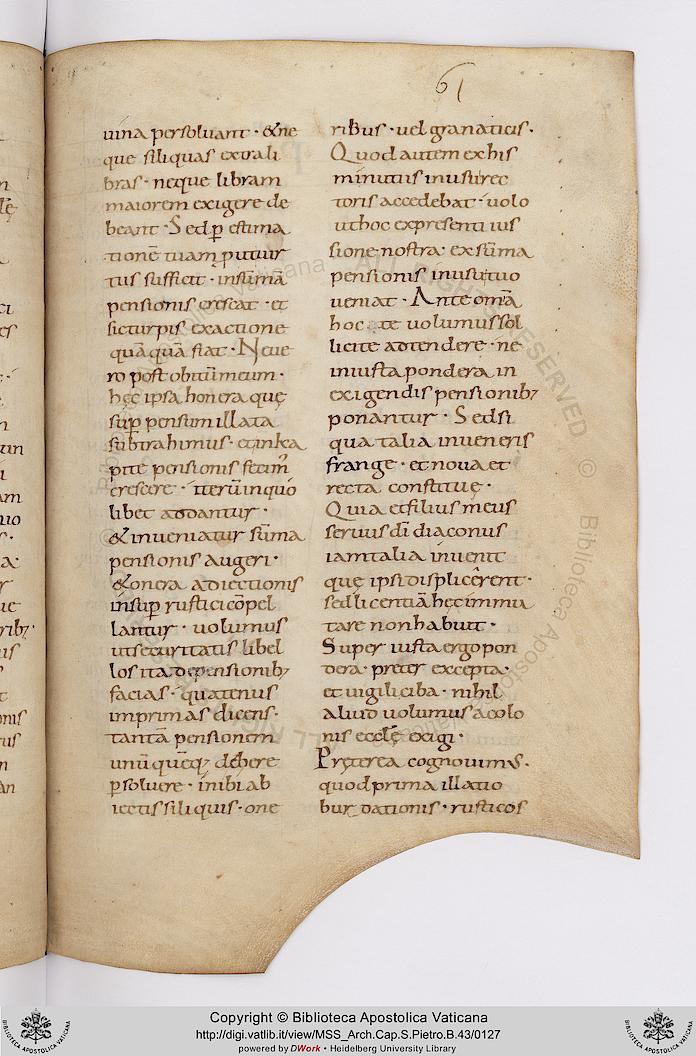 61
uina persoluant · &ne
que siliquas extrali
bras · neque libram
maiorem exigere de
beant · Sed ꝑ estima
tionē tuam prutur
tus sufficit · insūma
pensionis crescat · et
sicturpis exactione
quāquā fiat · Neue
ro post obitū meum ·
hęc ipsa honera quę
suꝑ pensum illata
subtrahimus · etinka
pite pensionis fecim̄
crescere · iterū inquo
libet addantur ·
& inueniatur sūma
pensionis augeri ·
& onera adiectionis
insuꝑ rusticicōpel
lantur · uolumus
utsecuritatis libel
los ita de pensionib;
facias · quatenus
imprimas dicens ·
tantā pensionem
unū quēq; debere
ꝑsoluere · inibi ab
iectis siliquis · one
ribus · uel granaticis ·
Quod autem ex his
minutiis inusurec
toris accedebat · uolo
uthoc expresenti ius
sione nostra · ex sūma
pensionis inusutuo
ueniat · Ante omā
hoc te uolumus sol
licite adtendere · ne
iniusta pondera in
exigendis pensionib;
ponantur · Sed si
qua talia inueneris
frange · et noua et
recta constituę ·
Quia et filius meus
seruus dī diaconus
iam talia inuenit
quę ipsi displicerent ·
sed licentiā hęc immu
tare non habuit ·
Super iusta ergo pon
dera · preter excepta ·
et uigili ciba · nihil
aliud uolumus a colo
nis ecclę exigi ·
Pręterea cognouimus ·
quod prima illatio
bur dationis · rusticos
Copyright © Biblioteca Apostolica Vaticana
http://digi.vatlib.it/view/MSS_Arch.Cap.S.Pietro.B.43/0127
powered by DWork • Heidelberg University Library